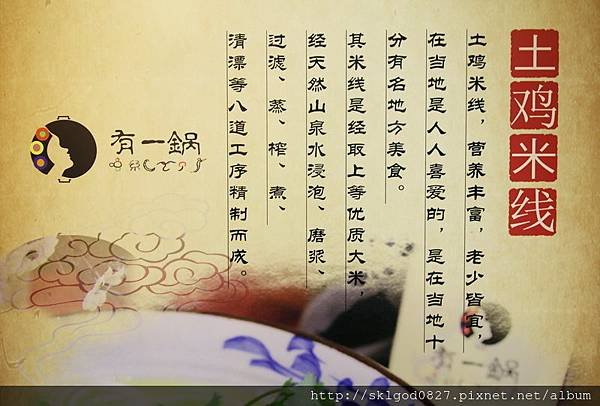 土鸡米线
土鸡米线，营养丰富，老少皆宜，
在当地是人人喜爱的，是在当地十
分有名地方美食。
其米线是经取上等优质大米，
经天然山泉水浸泡、磨浆、
过滤、蒸、榨、煮、
清漂等八道工序精制而成。
有一鍋
有一鍋
http://sklgod0827.pixnet.net/album